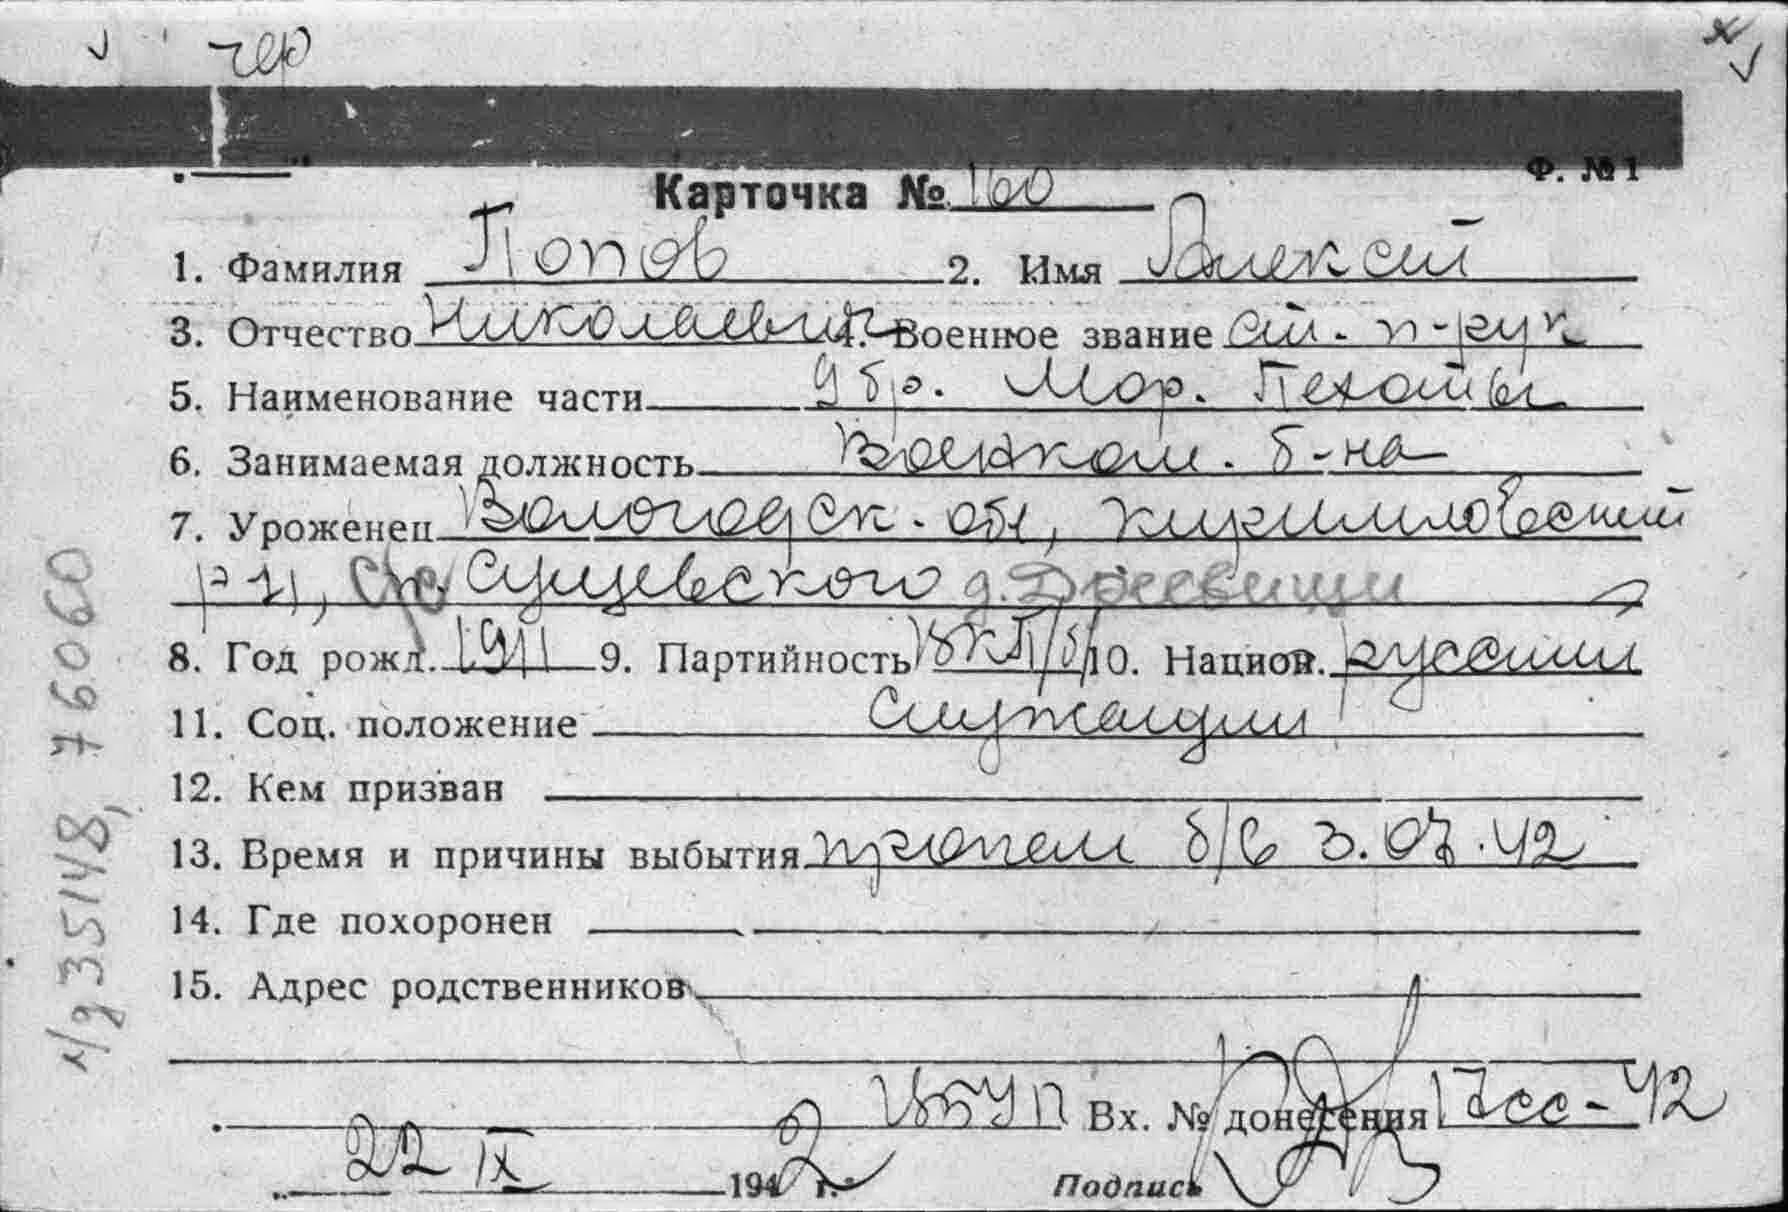 чер
Ф. №1
Карточка № 160
1. Фамилия Попов 2. Имя Алексей
3. Отчество Николаевич 4. Военное звание ст. п-рук
5. Наименование части 9 бр. Мор. Пехоты
6. Занимаемая должность Военком. б-на
7. Уроженец Вологодск. обл, Кирилловский
р-н, с/с Сущевского д.
8. Год рожд. 1911 9. Партийность ВКП/б/ 10. Национ. русский
11. Соц. положение Служащий
12. Кем призван
13. Время и причины выбытия пропал б/в 3.07.42
14. Где похоронен
15. Адрес родственников
Вх. № донесения 17сс-42
22 IX 1942 г. Подпись
л/д 335148, 76060